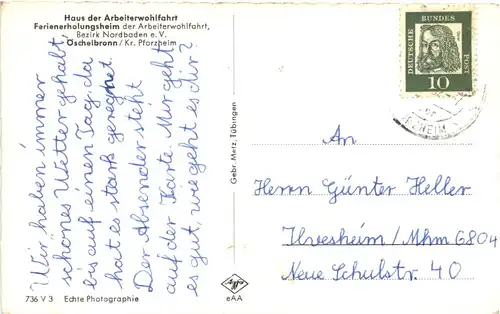 Haus der Arbeiterwohlfahrt
Ferienerholungsheim der Arbeiterwohlfahrt,
Bezirk Nordbaden e. V.
Öschelbronn / Kr. Pforzheim
Wir haben immer
schönes Wetter gehabt,
bis auf einen Tag, da
hat es stark geregnet.
Der Absender steht
auf der Karte. Mir geht
es gut, wie geht es dir?
Gebr. Metz, Tübingen
DEUTSCHE
BUNDES
POST
10
RZHEIM
An
Herrn Günter Heller
Ilvesheim / Mhm 6804
Neue Schulstr. 40
736 V 3 Echte Photographie
Agfa
eAA